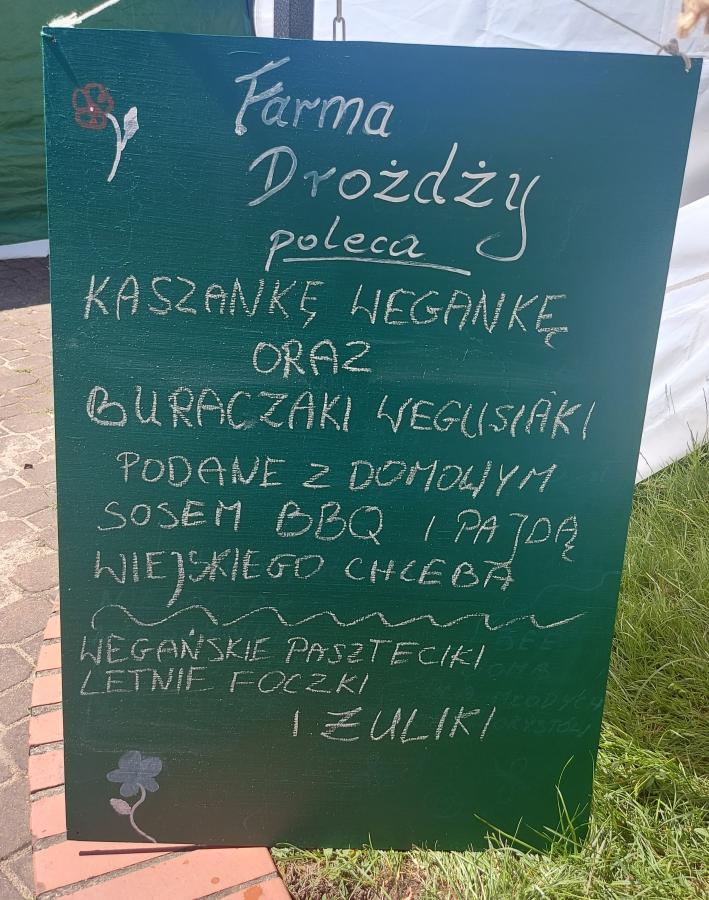 Farma
Drożdży
poleca
KASZANKĘ WEGANKĘ
ORAZ
BURACZAKI WEGUSIAKI
PODANE Z DOMOWYM
SOSEM BBQ I PAJDĄ
WIEJSKIEGO CHLEBA
WEGAŃSKIE PASZTECIKI
LETNIE FOCZKI
I ŻULIKI